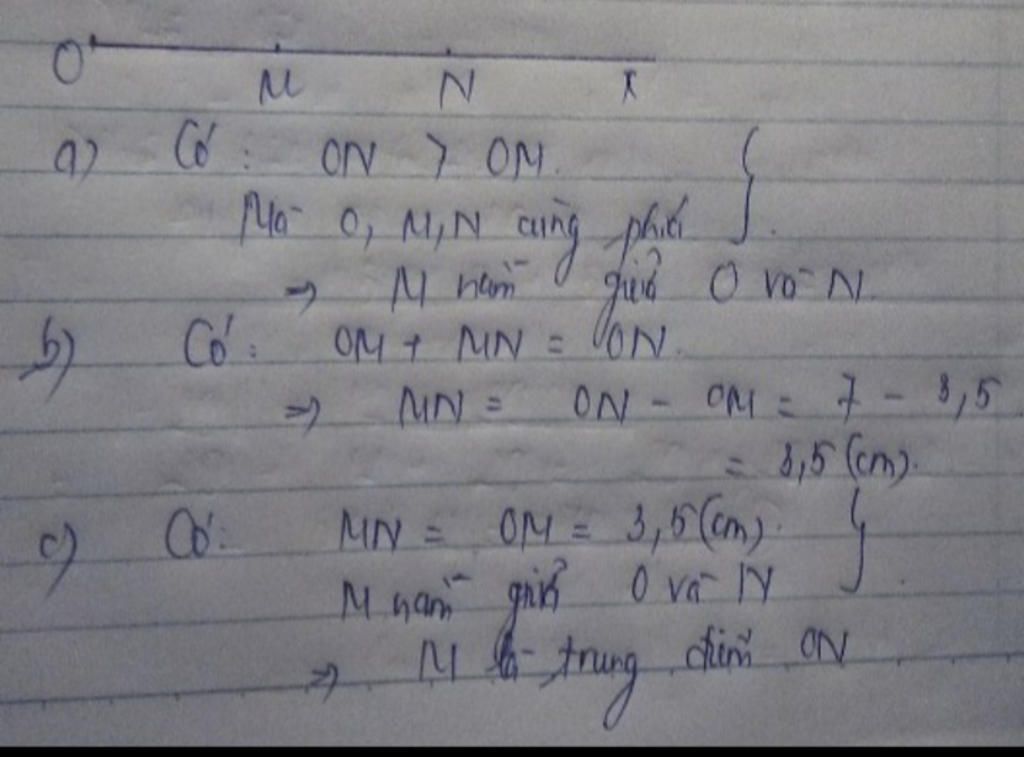 O M N x
a) Có: ON > OM. }
Mà O, M, N cùng phía .
=> M nằm giữa O và N.
b) Có: OM + MN = ON.
=> MN = ON - OM = 7 - 3,5
= 3,5 (cm).
c) Có: MN = OM = 3,5 (cm). }
M nằm giữa O và N .
=> M là trung điểm ON